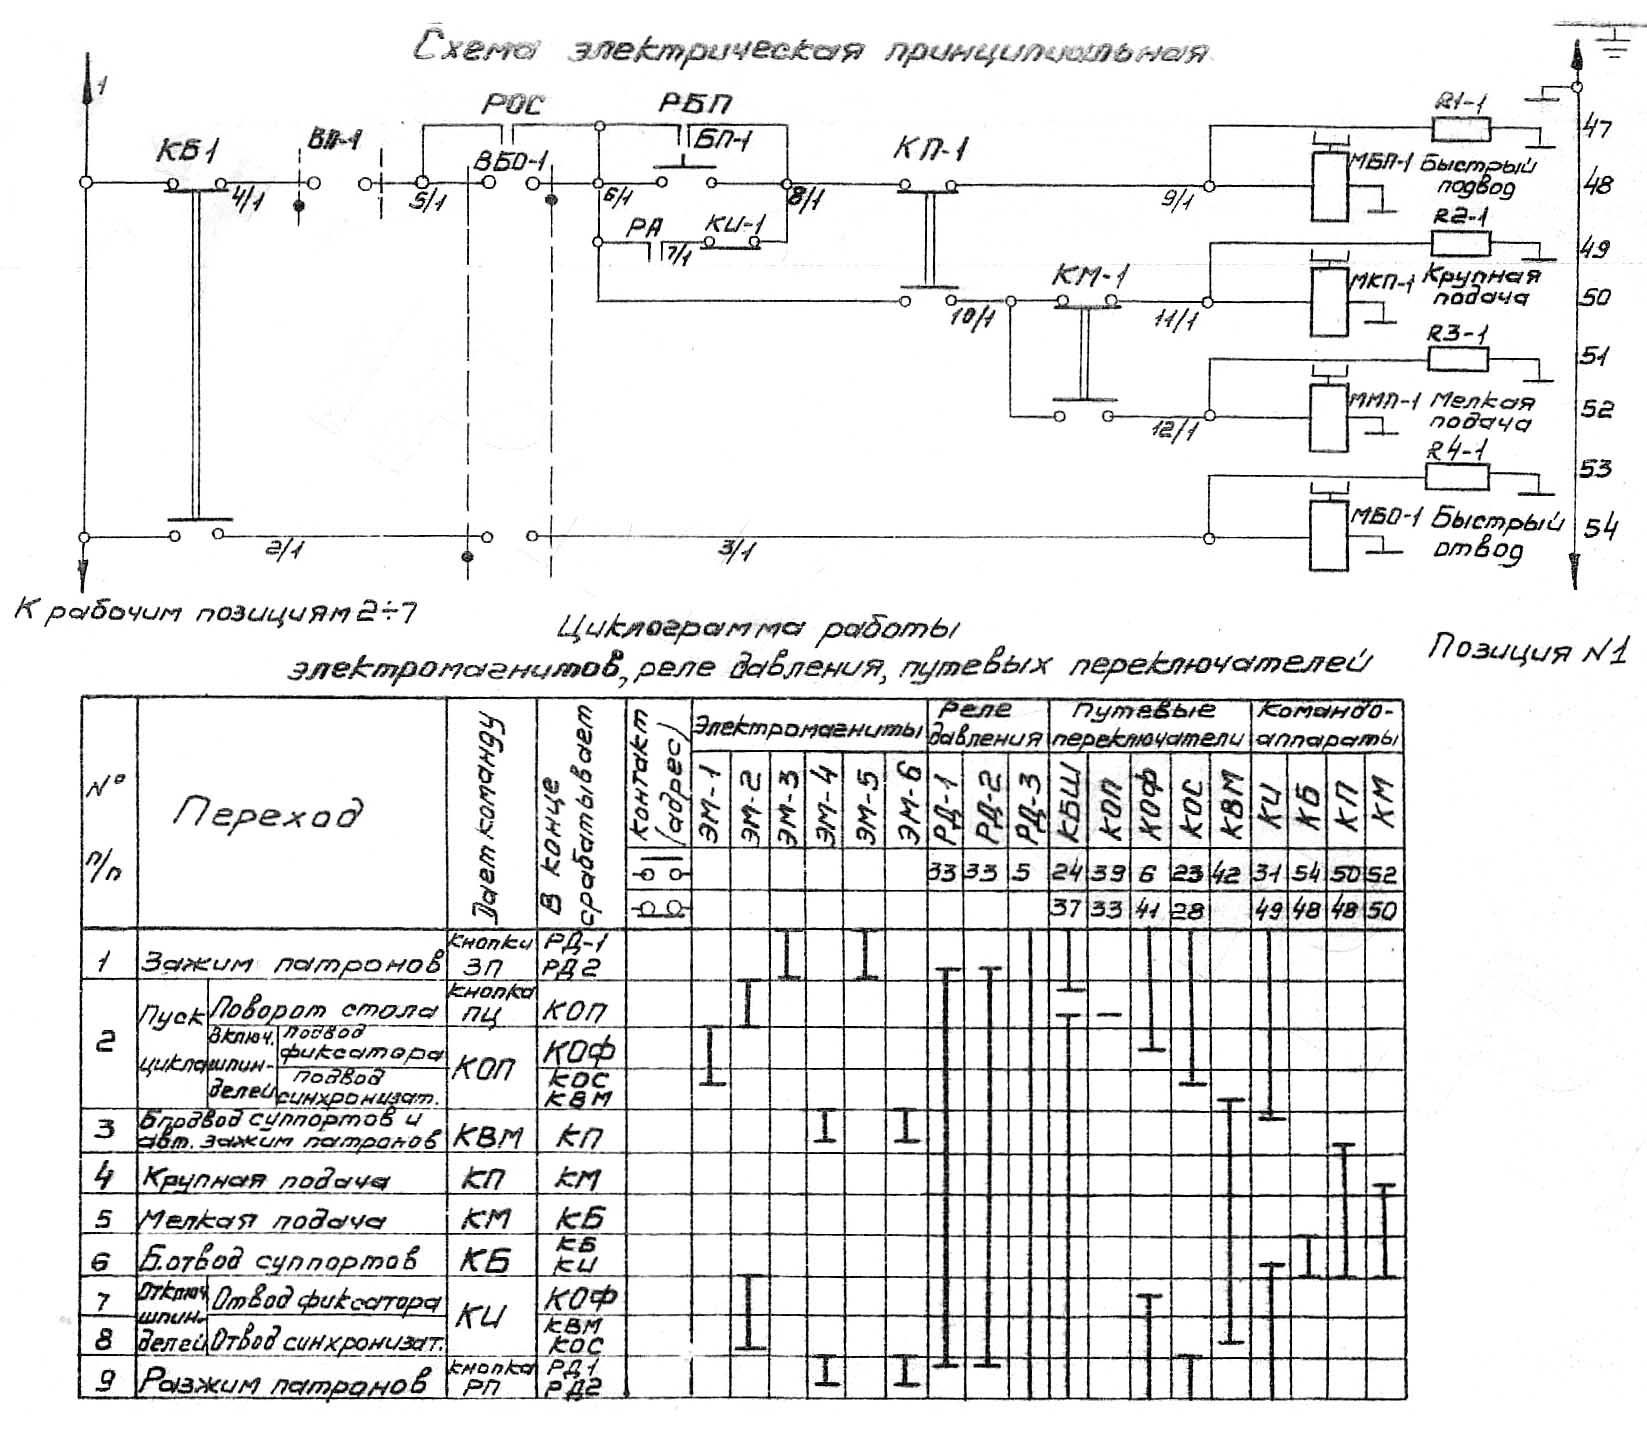 Схема электрическая принципиальная
1
РОС
РБП
R1-1
47
КБ1
ВП-1
ВБО-1
БП-1
КП-1
МБП-1 Быстрый
подвод
48
4/1
5/1
6/1
8/1
9/1
R2-1
49
РА
7/1
КИ-1
КМ-1
МКП-1 Крупная
подача
50
10/1
11/1
R3-1
51
ММП-1 Мелкая
подача
52
12/1
R4-1
53
МБО-1 Быстрый
отвод
54
2/1
3/1
К рабочим позициям 2÷7
Циклограмма работы
электромагнитов, реле давления, путевых переключателей
Позиция №1
№
п/п
Переход
Дает команду
В конце
срабатывает
контакт
(адрес)
Электромагниты
Реле
давления
Путевые
переключатели
Командо-
аппараты
ЭМ-1
ЭМ-2
ЭМ-3
ЭМ-4
ЭМ-5
ЭМ-6
РД-1
РД-2
РД-3
КБШ
КОП
КОФ
КОС
КВМ
КИ
КБ
КП
КМ
33 33 5 24 39 6 23 42 31 54 50 52
37 33 41 28 49 48 48 50
1 Зажим патронов
кнопки
ЗП
РД-1
РД2
2
Пуск
цикла
Поворот стола
кнопка
ПЦ
КОП
включ.
шпин-
делей
подвод
фиксатора
КОП
КОФ
подвод
синхронизат.
КОС
КВМ
3 Б.подвод суппортов и
авт. зажим патронов
КВМ
КП
4 Крупная подача КП КМ
5 Мелкая подача КМ КБ
6 Б.отвод суппортов КБ
КБ
КИ
7
Отключ
шпин.
делей
Отвод фиксатора
КИ
КОФ
8
Отвод синхронизат.
КВМ
КОС
9 Разжим патронов
кнопка
РП
РД1
РД2